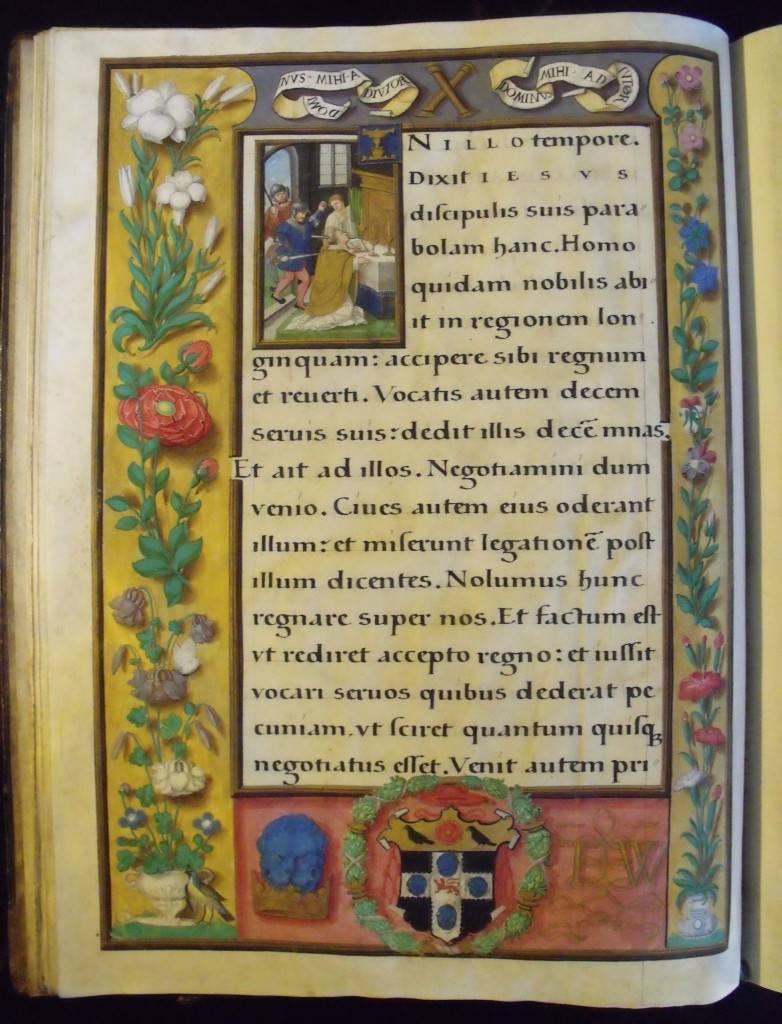 DOMI NVS · MIHI · A DIVTOR
X
DOMINVS MIHI · AD IVTOR
N ILLO tempore.
Dixit IESVS
discipulis suis para
bolam hanc. Homo
quidam nobilis abi
it in regionem lon
ginquam: accipere sibi regnum
et reuerti. Vocatis autem decem
seruis suis: dedit illis decē mnas.
Et ait ad illos. Negotiamini dum
venio. Ciues autem eius oderant
illum: et miserunt legationē post
illum dicentes. Nolumus hunc
regnare super nos. Et factum est
vt rediret accepto regno: et iussit
vocari seruos quibus dederat pe
cuniam, vt sciret quantum quisqꝫ
negotiatus esset. Venit autem pri
T W